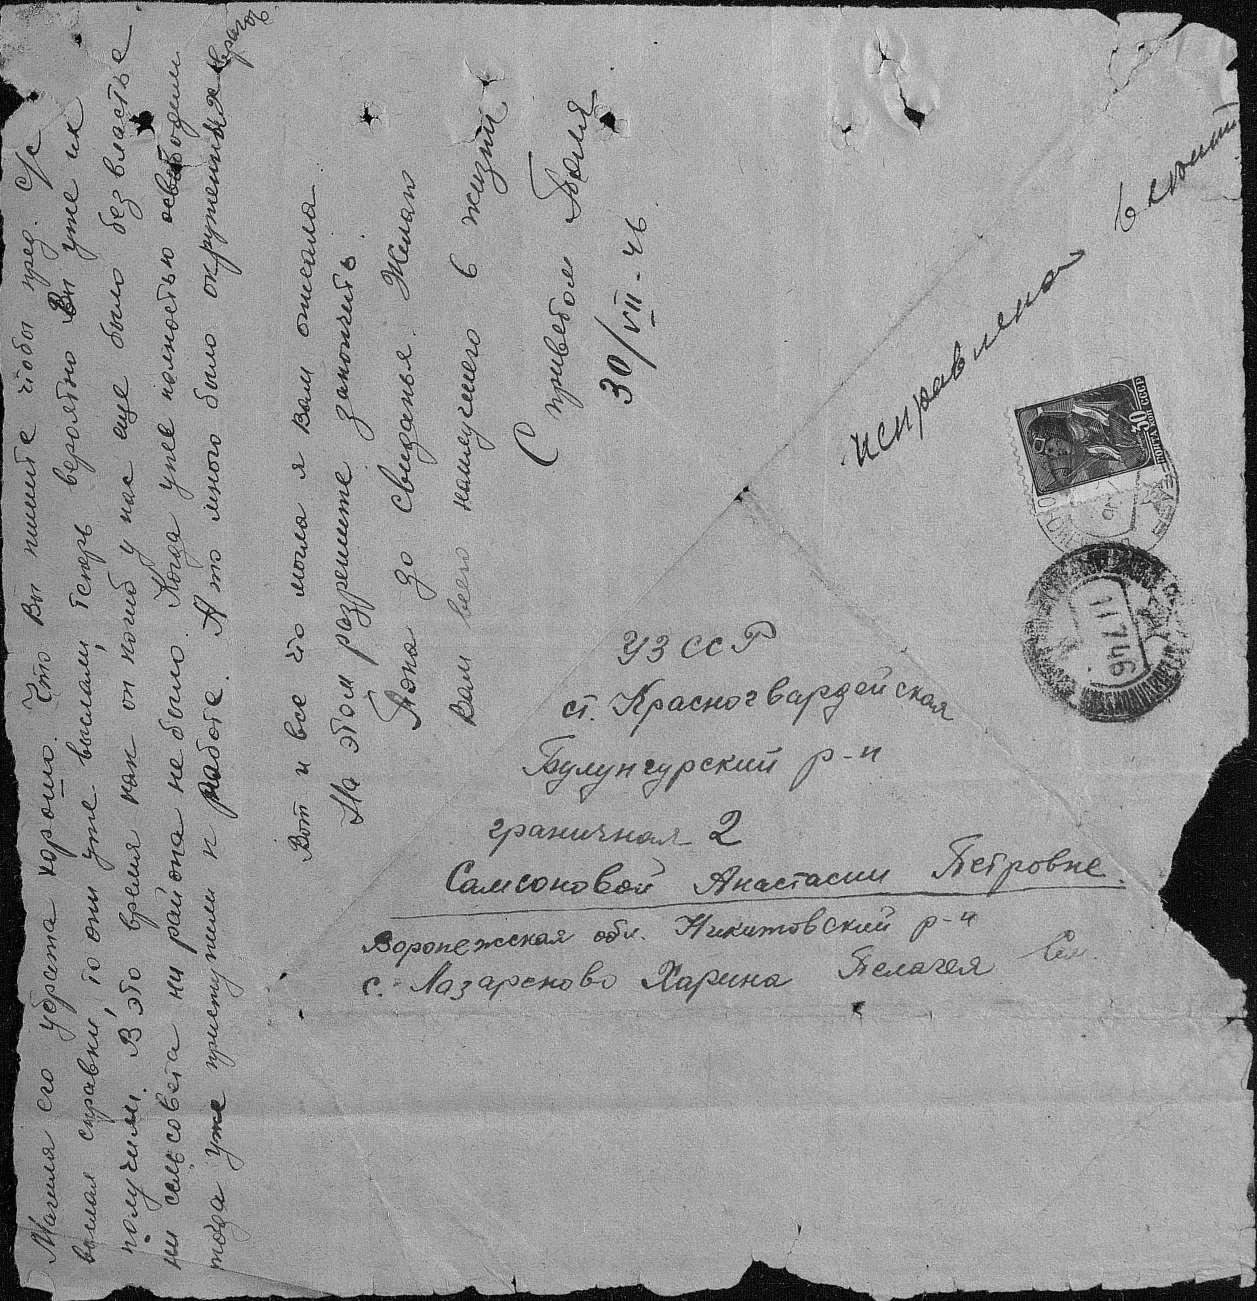 Магила его убрата хорошо. Что Вы пишите чтобы пред. с/с
выслал справки, то они уже выслали, теперь вероятно Вы уже их
получили. В это время как он погиб у нас еще было без властье
ни сельсовета ни района не было. Когда уже полностью освободили
тода уже приступили к работе. А то много было окруженных врагов
Вот и все что могла я Вам описала
На этом разрешите закончить.
Пока до свиданья. Желаю
Вам всего наилучшего в жизни
С приветом Поля
30/VII-46
исправлено
УЗ ССР
ст. Красногвардейская
Булунгурский р-н
граничная 2
Самсоновой Анастасии Петровне.
Воронежская обл. Никитовский р-н
с. Лазареково Харина Пелагея
ПОЧТА СССР
30 КОП
11 7 46